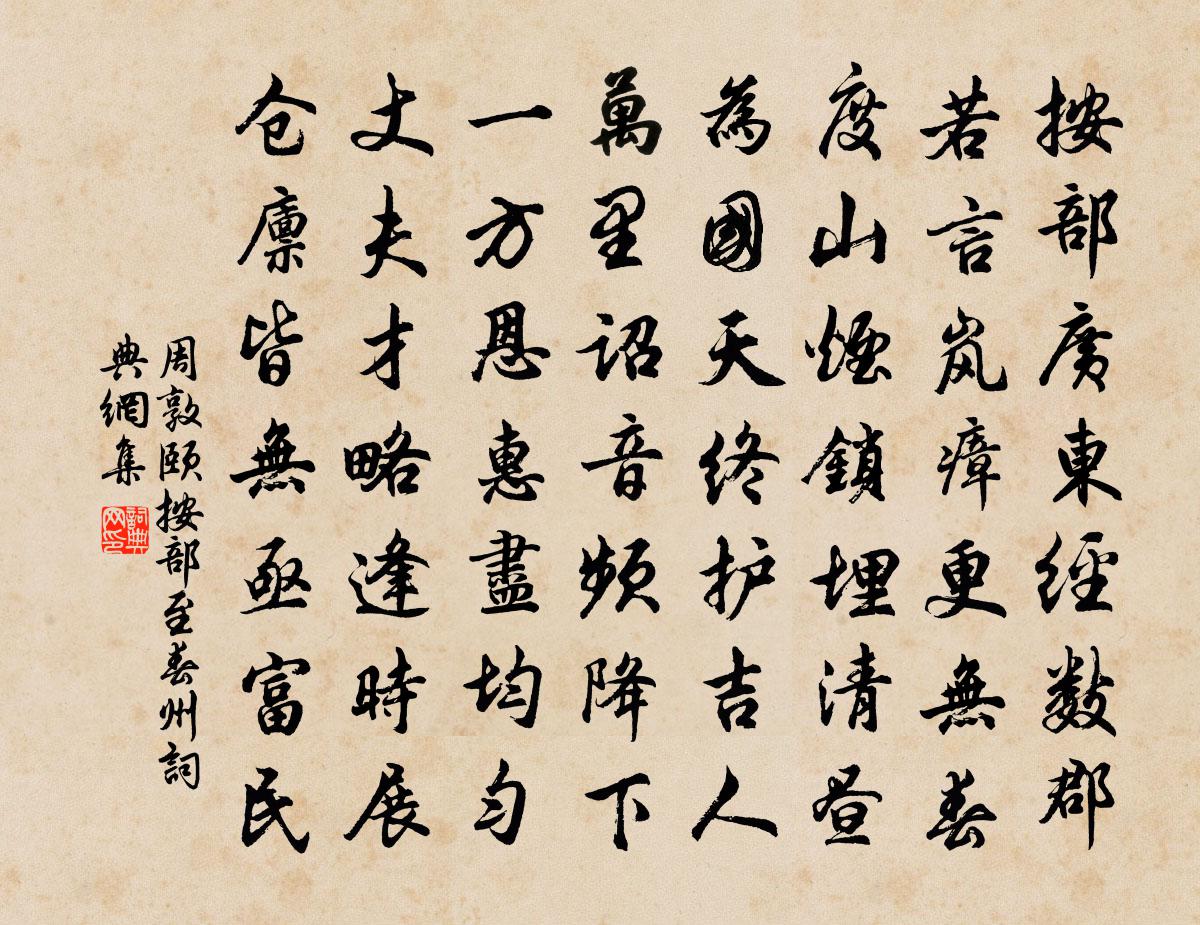 按部廣東經數郡
若言岚瘴更無春
度山煙鎖埋清晝
為國天終护吉人
萬里詔音頻降下
一方恩惠盡均勻
丈夫才略逢時展
仓廪皆無亟富民
周敦頤按部至春州詞
典網集
詞典
网印